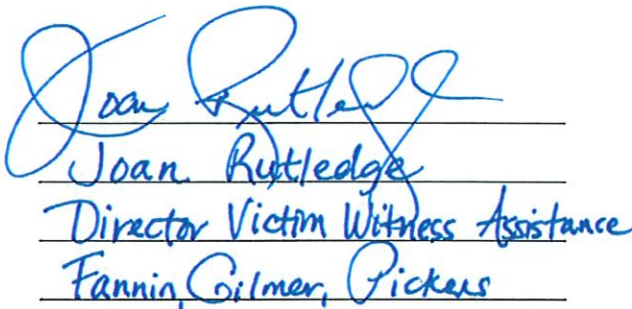 Joan Rutledge
Joan Rutledge
Director Victim Witness Assistance
Fannin, Gilmer, Pickens